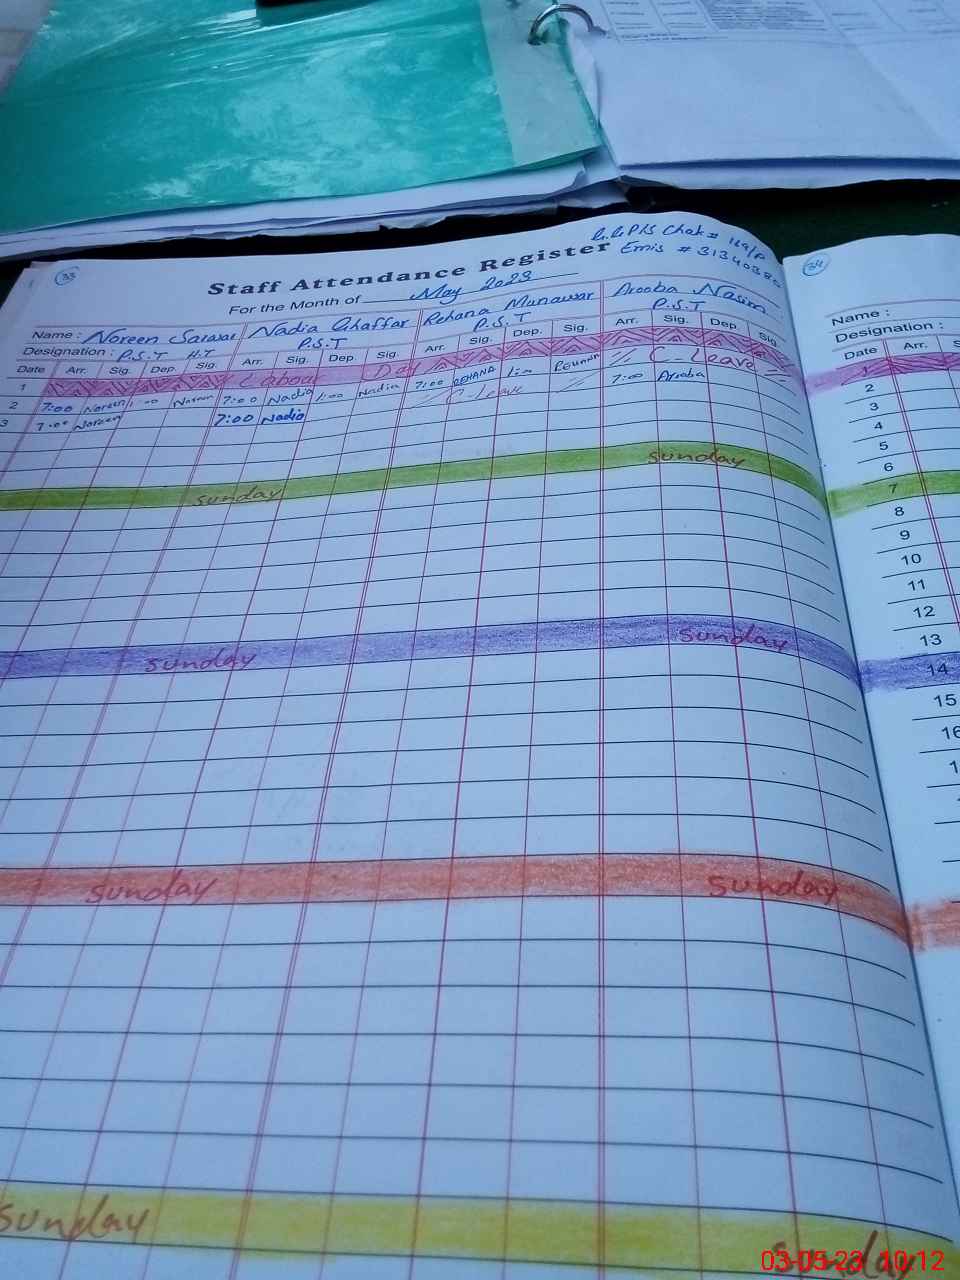 33
G.G.P/S Chak # 169/P
Staff Attendance Register
Emis # 3134038
34
For the Month of May 2023
Name : Noreen Sarwar Nadia Ghaffar Rehana Munawar Arooba Nasim
Designation : P.S.T H.T P.S.T P.S.T P.S.T
Date Arr. Sig. Dep. Sig. Arr. Sig. Dep. Sig. Arr. Sig. Dep. Sig. Arr. Sig. Dep. Sig.
1 Labour Day
2 7:00 Noreen 1:00 Noreen 7:00 Nadia 1:00 Nadia 7:00 REHANA 1:00 C-Leave
3 7:00 Noreen 7:00 Nadia C-leave 7:00 Arooba
sunday sunday
sunday sunday
sunday sunday
sunday sunday
Name :
Designation :
Date Arr. S
1
2
3
4
5
6
7
8
9
10
11
12
13
14
15
16
1
03-05-23 10:12